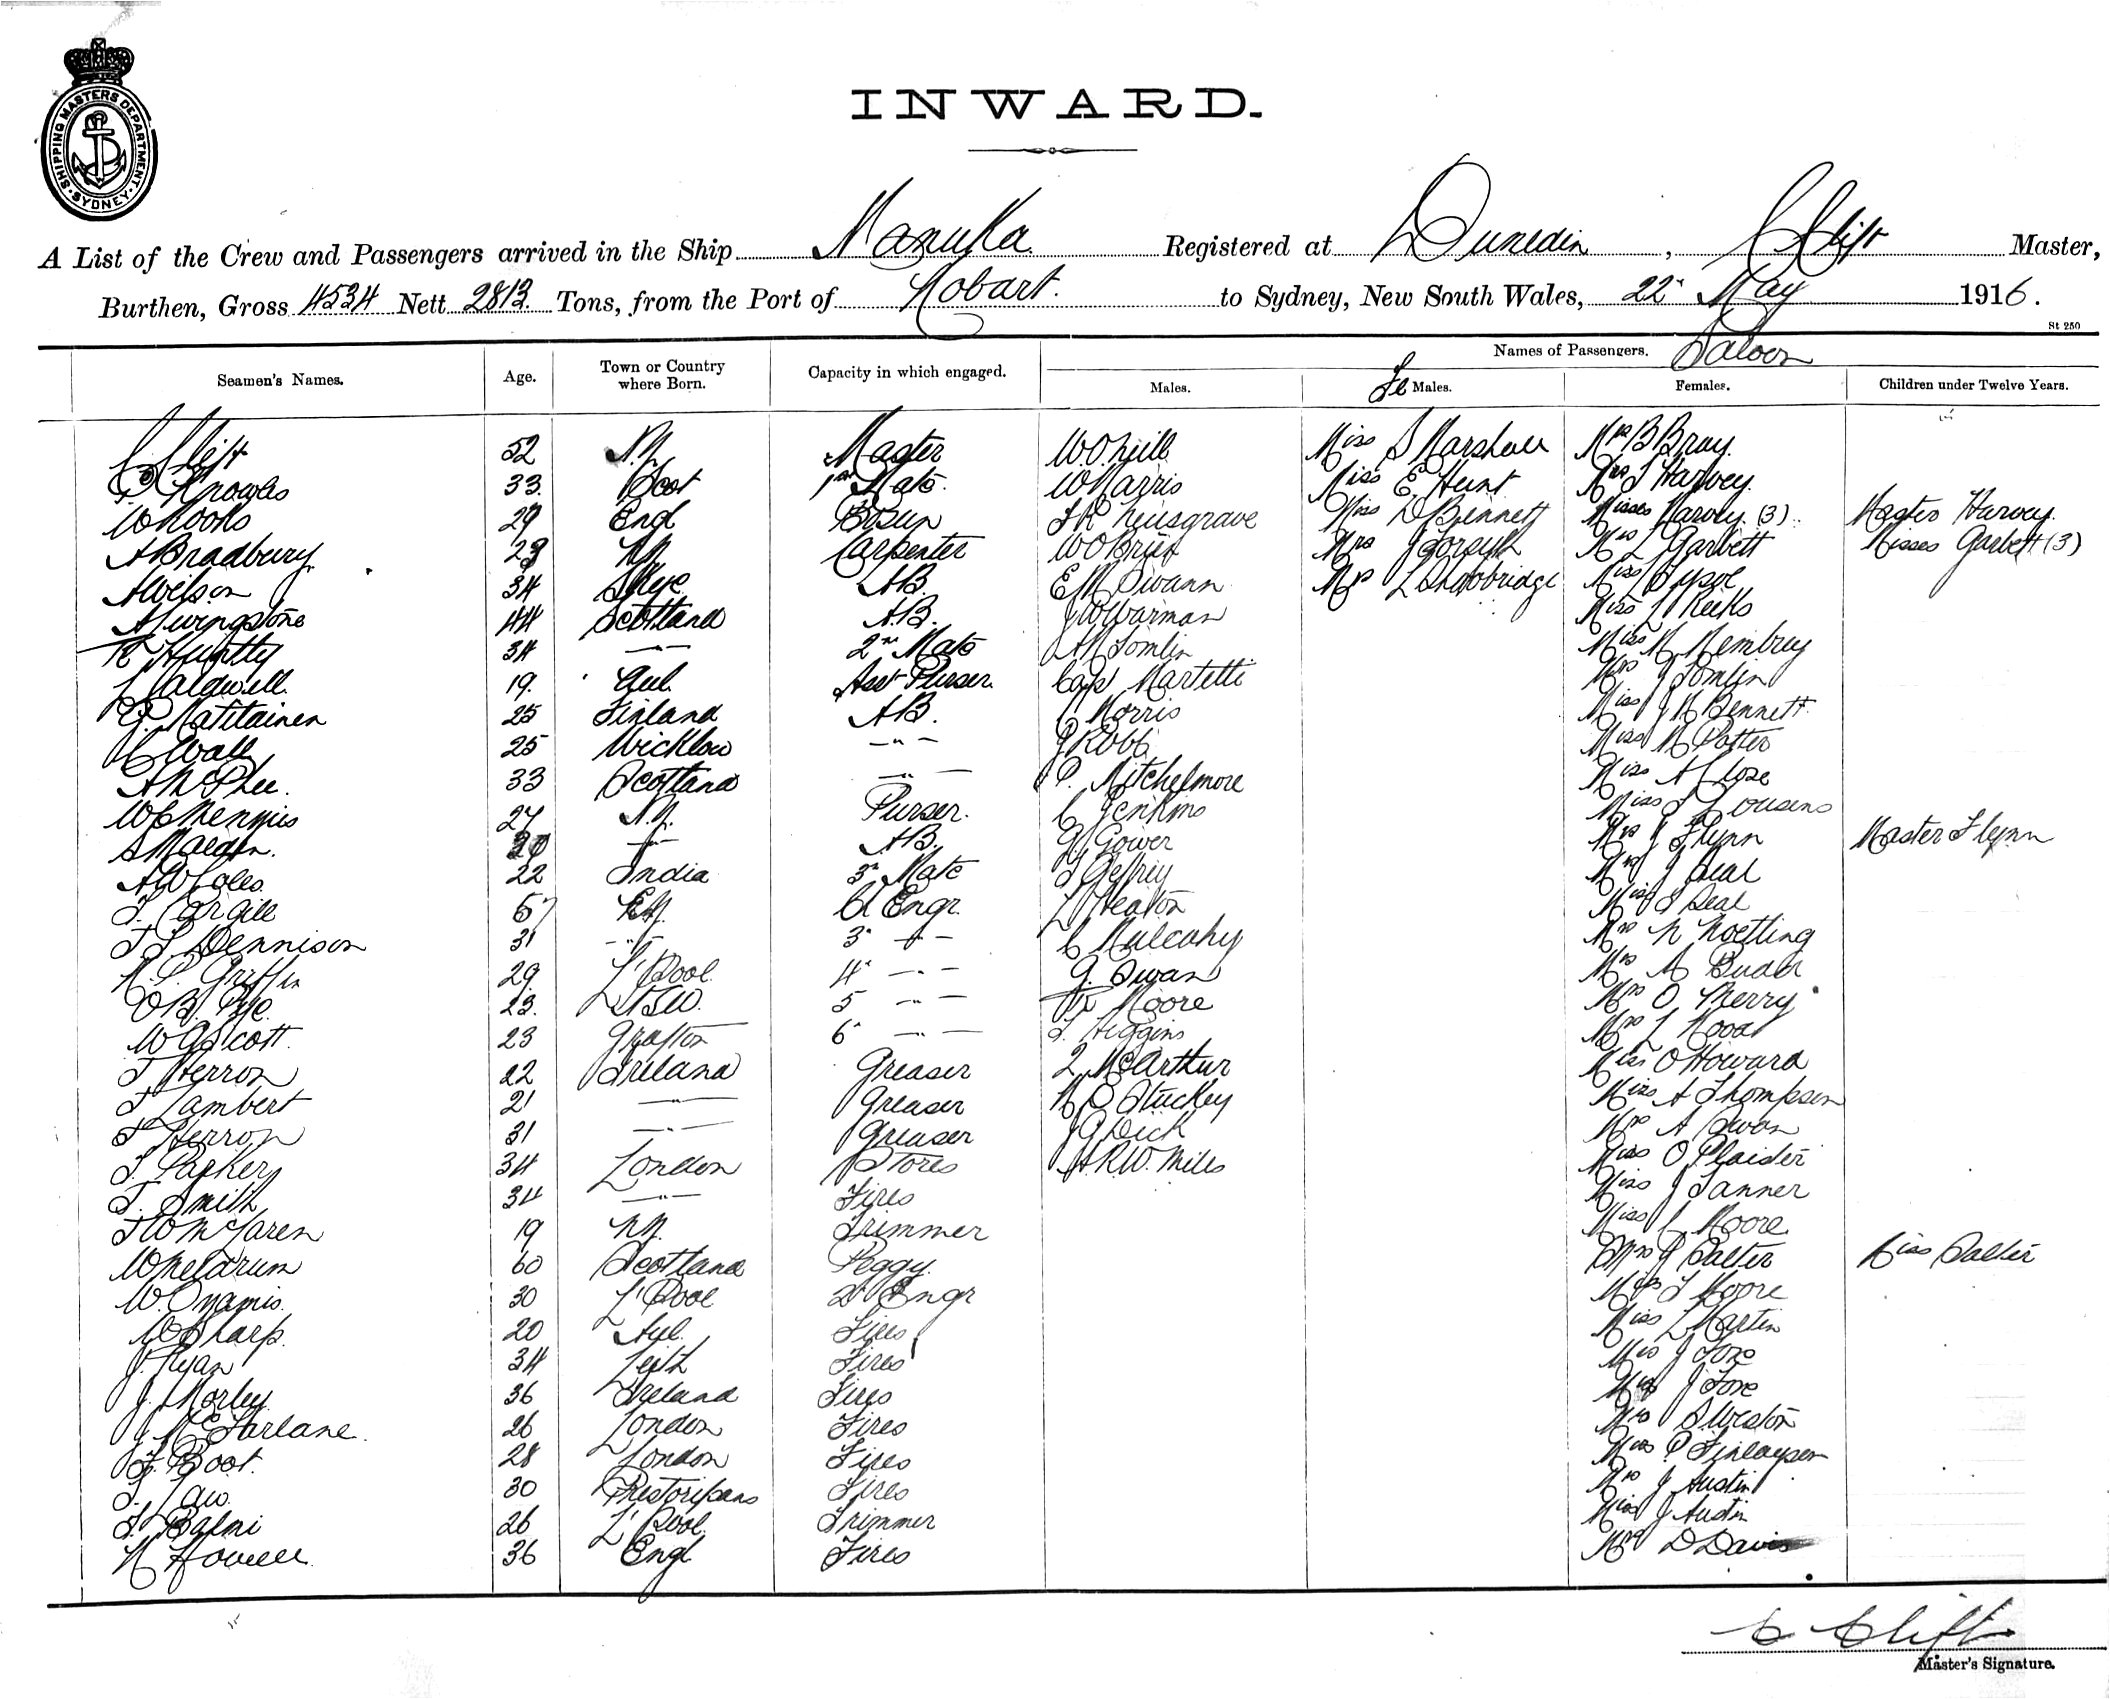 SHIPPING MASTERS DEPARTMENT · SYDNEY ·
INWARD.
A List of the Crew and Passengers arrived in the Ship Manuka Registered at Dunedin, C Clift Master,
Burthen, Gross 4534 Nett 2813 Tons, from the Port of Hobart. to Sydney, New South Wales, 22 May 1916.
St 250
Names of Passengers. Saloon
Seamen's Names. Age. Town or Country where Born. Capacity in which engaged. Males. Fe Males. Females. Children under Twelve Years.
C Clift 52 N.Z. Master W. O'Neill Miss S Marshall Mrs B Bray.
Knowles 33. Scot 1st Mate. W Harris Miss E. Hunt Mrs Harvey.
W Rooks 29 Engl Bosun Musgrave Miss D Bennett Misses Harvey (3) Master Harvey.
A Bradbury 28 N.Z. Carpenter W O'Brien Mrs J Forsyth Mrs L Garbett Misses Garbett (3)
A Wilson 34 Skye AB. E M Swann Mrs L Shoobridge Miss
A Livingstone 44 Scotland A.B. J W Warman Miss L
R Huntly 34 —"— 2nd Mate A M Tomlin Miss M. Membrey
L Caldwell. 19. Aul. Asst Purser. Capt Martelli Mrs J Tomlin
G. Matilainen 25 Finland AB. C Morris Miss J M Bennett.
C Wall 25 Wicklow —"— J Robb Miss M Potter
A McPhee. 33 Scotland —"— P. Mitchelmore Miss A Close
W C Menzies 27 N.Z. Purser. C Jenkins Miss Cousens
S Maegin. 20 —"— AB. G. Gower Mrs J Flynn Master Flynn
A W Coles. 22 India 3rd Mate Geffrey Mrs J Deal
J. Cargill 57 C Engr. L Heaton Miss J Deal
J S Dennison 31 —"— 3" —"— C Mulcahy Mrs N Noetling
H. S. Griffin 29 L'Pool. 4" —"— G. Swan Mrs A
O B. Pye. 23. NSW. 5 —"— R Moore Mrs O Merry
W G Scott. 23 Grafton 6" —"— J. Higgins Mrs L Hood
J Herron 22 Ireland Greaser McArthur Miss O Howard
J Lambert 21 —"— Greaser Stuckey Miss A Thompson
J Herron 31 —"— Greaser J G Dick Mrs A Swan
J. Parker 34 London Stores A R W. Miles Miss O Plaister
J. Smith 34 —"— Fires Miss J Tanner
McLaren 19 N.Z. Trimmer Miss C Moore
W Meldrum 60 Scotland Peggy. Mrs J Salter Miss Salter
W. 30 L'Pool 2nd Engr Moore
W Sharp. 20 Aul. Fires Miss L Martin
J. Ryan 34 Leith Fires
J. Morley 36 Ireland Fires
J McFarlane. 26 London Fires S Weston
J. Boot. 28 London Fires Finlayson
J. Law. 30 Prestonpans Fires Mrs J Austin
J. 26 L'Pool. Trimmer Miss J Austin
H Howell. 36 Engl Fires Mrs D Davis
C Clift
Master's Signature.